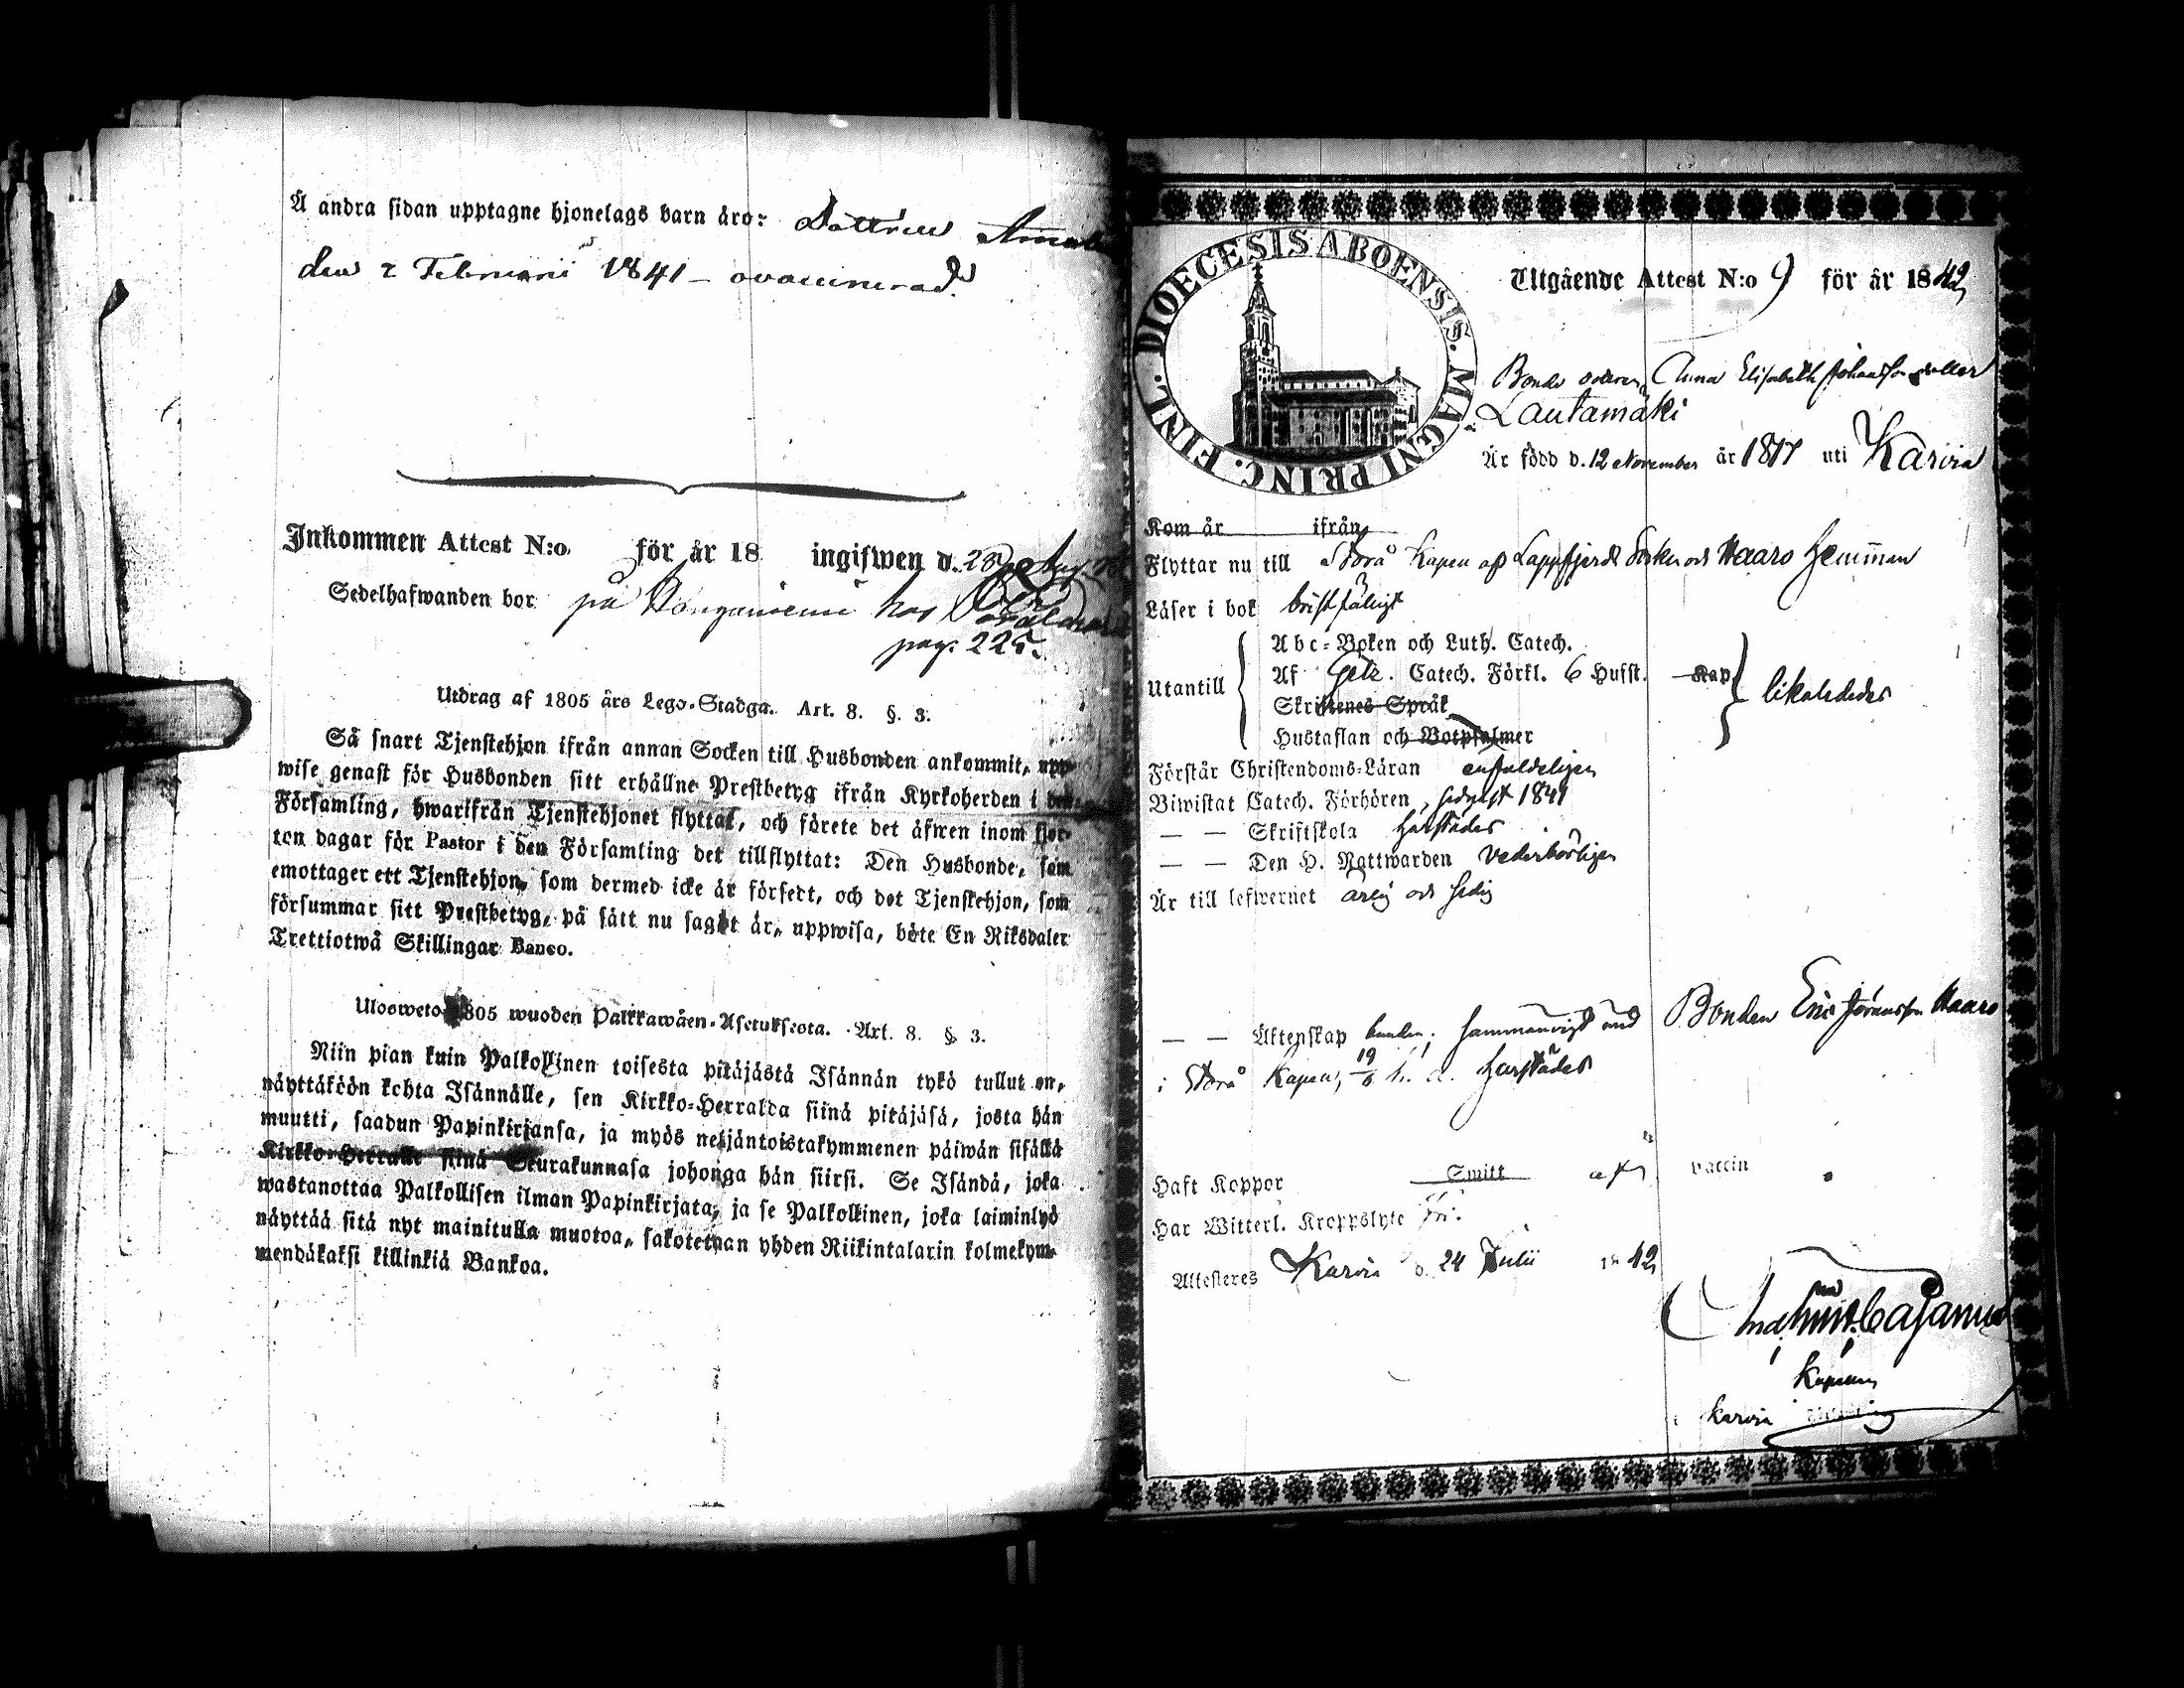 Å andra sidan upptagne hjonelags barn äro: Dottren
den 2 Februarii 1841 – ovaccinerad.
Inkommen Attest N:o för år 18 ingifwen d. 28
Sedelhafwanden bor på hos
pag. 225.
Utdrag af 1805 års Lego-Stadga. Art. 8. §. 3.
Så snart Tjenstehjon ifrån annan Socken till Husbonden ankommit, upp-
wise genast för Husbonden sitt erhållne Prestbetyg ifrån Kyrkoherden i den
Församling, hwarifrån Tjenstehjonet flyttat, och förete det äfwen inom fjor-
ton dagar för Pastor i den Församling det tillflyttat: Den Husbonde, som
emottager ett Tjenstehjon, som dermed icke är försedt, och det Tjenstehjon, som
försummar sitt Prestbetyg, på sätt nu sagdt är, uppwisa, böte En Riksdaler
Trettiotwå Skillingar Banco.
Ulosweto 1805 wuoden Palkkawäen-Asetuksesta. Art. 8. § 3.
Niin pian kuin Palkollinen toisesta pitäjästä Isännän tykö tullut on,
näyttäköön kohta Isännälle, sen Kirkko-Herralda siinä pitäjäsä, josta hän
muutti, saadun Papinkirjansa, ja myös neljäntoistakymmenen päiwän sisällä
Kirkko-Herralle siinä Seurakunnasa johonga hän siirsi. Se Isändä, joka
wastanottaa Palkollisen ilman Papinkirjata, ja se Palkollinen, joka laiminlyö
näyttää sitä nyt mainitulla muotoa, sakotetaan yhden Riikintalarin kolmekym-
mendäkaksi killinkiä Bankoa.
DIOECESIS ABOENSIS. MAGNI PRINC. FINL.
Utgående Attest N:o 9 för år 1842
Bonde Anna Elisabeth
Lautamäki
Är född d. 12 November år 1817 uti Karvia
Kom år ifrån
Flyttar nu till Storå Kapell af Lappfjerds Socken och Haaro Hemman
Läser i bok bristfälligt
Abc-Boken och Luth. Catech.
Utantill Af Catech. Förkl. 6 Hufst. Kap. likaledes
Skriftenes Språk
Hustaflan och Botpsalmer
Förstår Christendoms-Läran enfaldeligen
Biwistat Catech. Förhören, sednast 1841
— — Skriftskola härstädes
— — Den H. Nattwarden vederbörligen
Är till lefwernet ärlig och sedig
— — Äktenskap bunden; sammanvigd med Bonden Eric Haaro
i Storå Kapell, 19/6 h. a. härstädes
Haft Koppor Smitt af vaccin
Har Witterl. Kroppslyte Fri.
Attesteras Karvia d. 24 Julii 1842
Cajanus
Kapellan
i Karvia